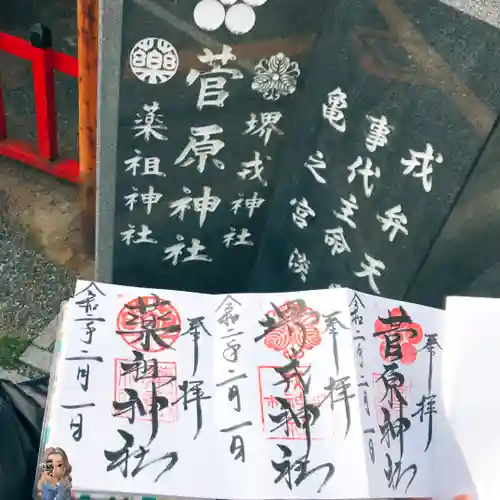 戎
弁天
事代主命
亀之宮
堺戎神社
菅原神社
薬
薬祖神社
奉拝
菅原神社
令和二年二月一日
奉拝
堺戎神社
令和二年二月一日
奉拝
薬祖神社
令和二年二月一日